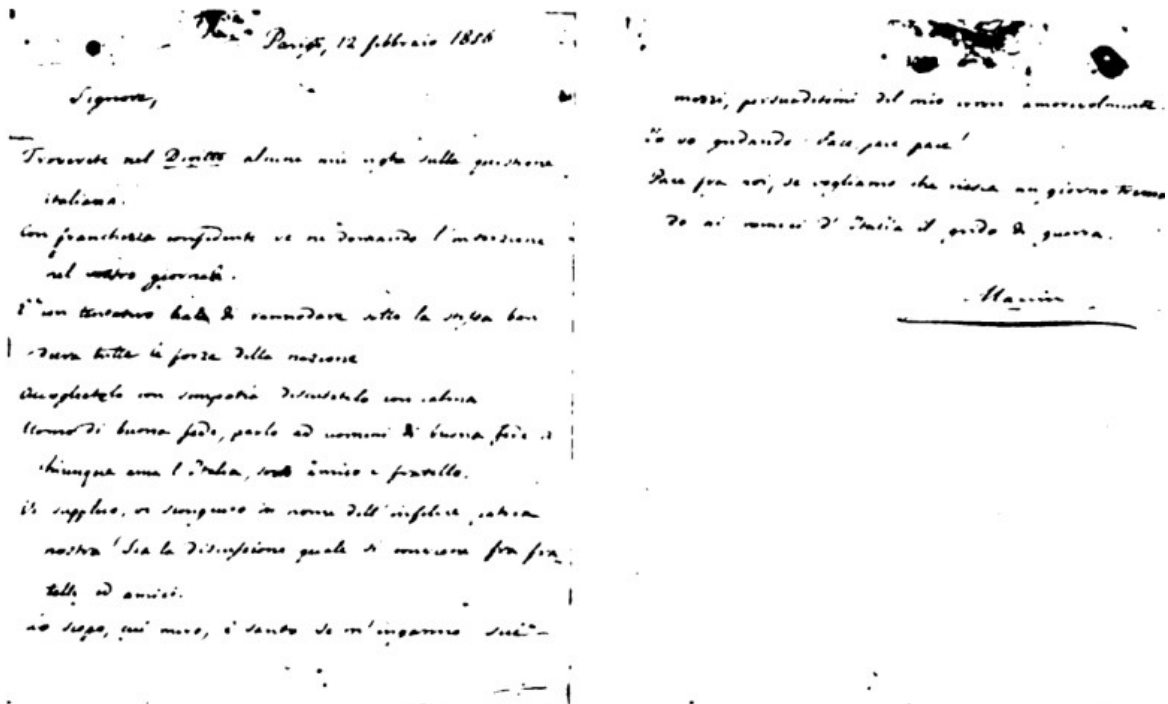 Parigi, 12 febbraio 1856
Signore,
Troverete nel Diritto alcune mie note sulla quistione
italiana.
Con franchezza confidente ve ne domando l'inserzione
nel vostro giornale.
È un tentativo leale di rannodare sotto la stessa ban
diera tutte le forze della nazione
Accoglietelo con simpatia discutetelo con calma
Uomo di buona fede, parlo ad uomini di buona fede a
chiunque ama l'Italia, sono amico e fratello.
Vi supplico, vi scongiuro in nome dell'infelice patria
nostra! Sia la discussione quale si conviene fra fra
telli ed amici.
Lo scopo, cui miro, è santo se m'inganno sui
mezzi, persuadetemi del mio errore amorevolmente.
Io vo gridando Pace, pace pace!
Pace fra noi, se vogliamo che riesca un giorno tremen
do ai nemici d'Italia il grido di guerra.
Manin